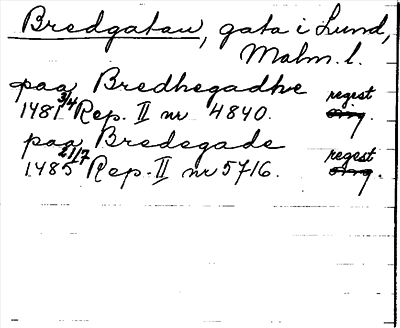 Bredgatan, gata i Lund,
Malm. l.
paa Bredhegadhe
1481 3/4 Rep. II nr 4840. regest
paa Bredegade
1485 21/7 Rep. II nr 5716. regest